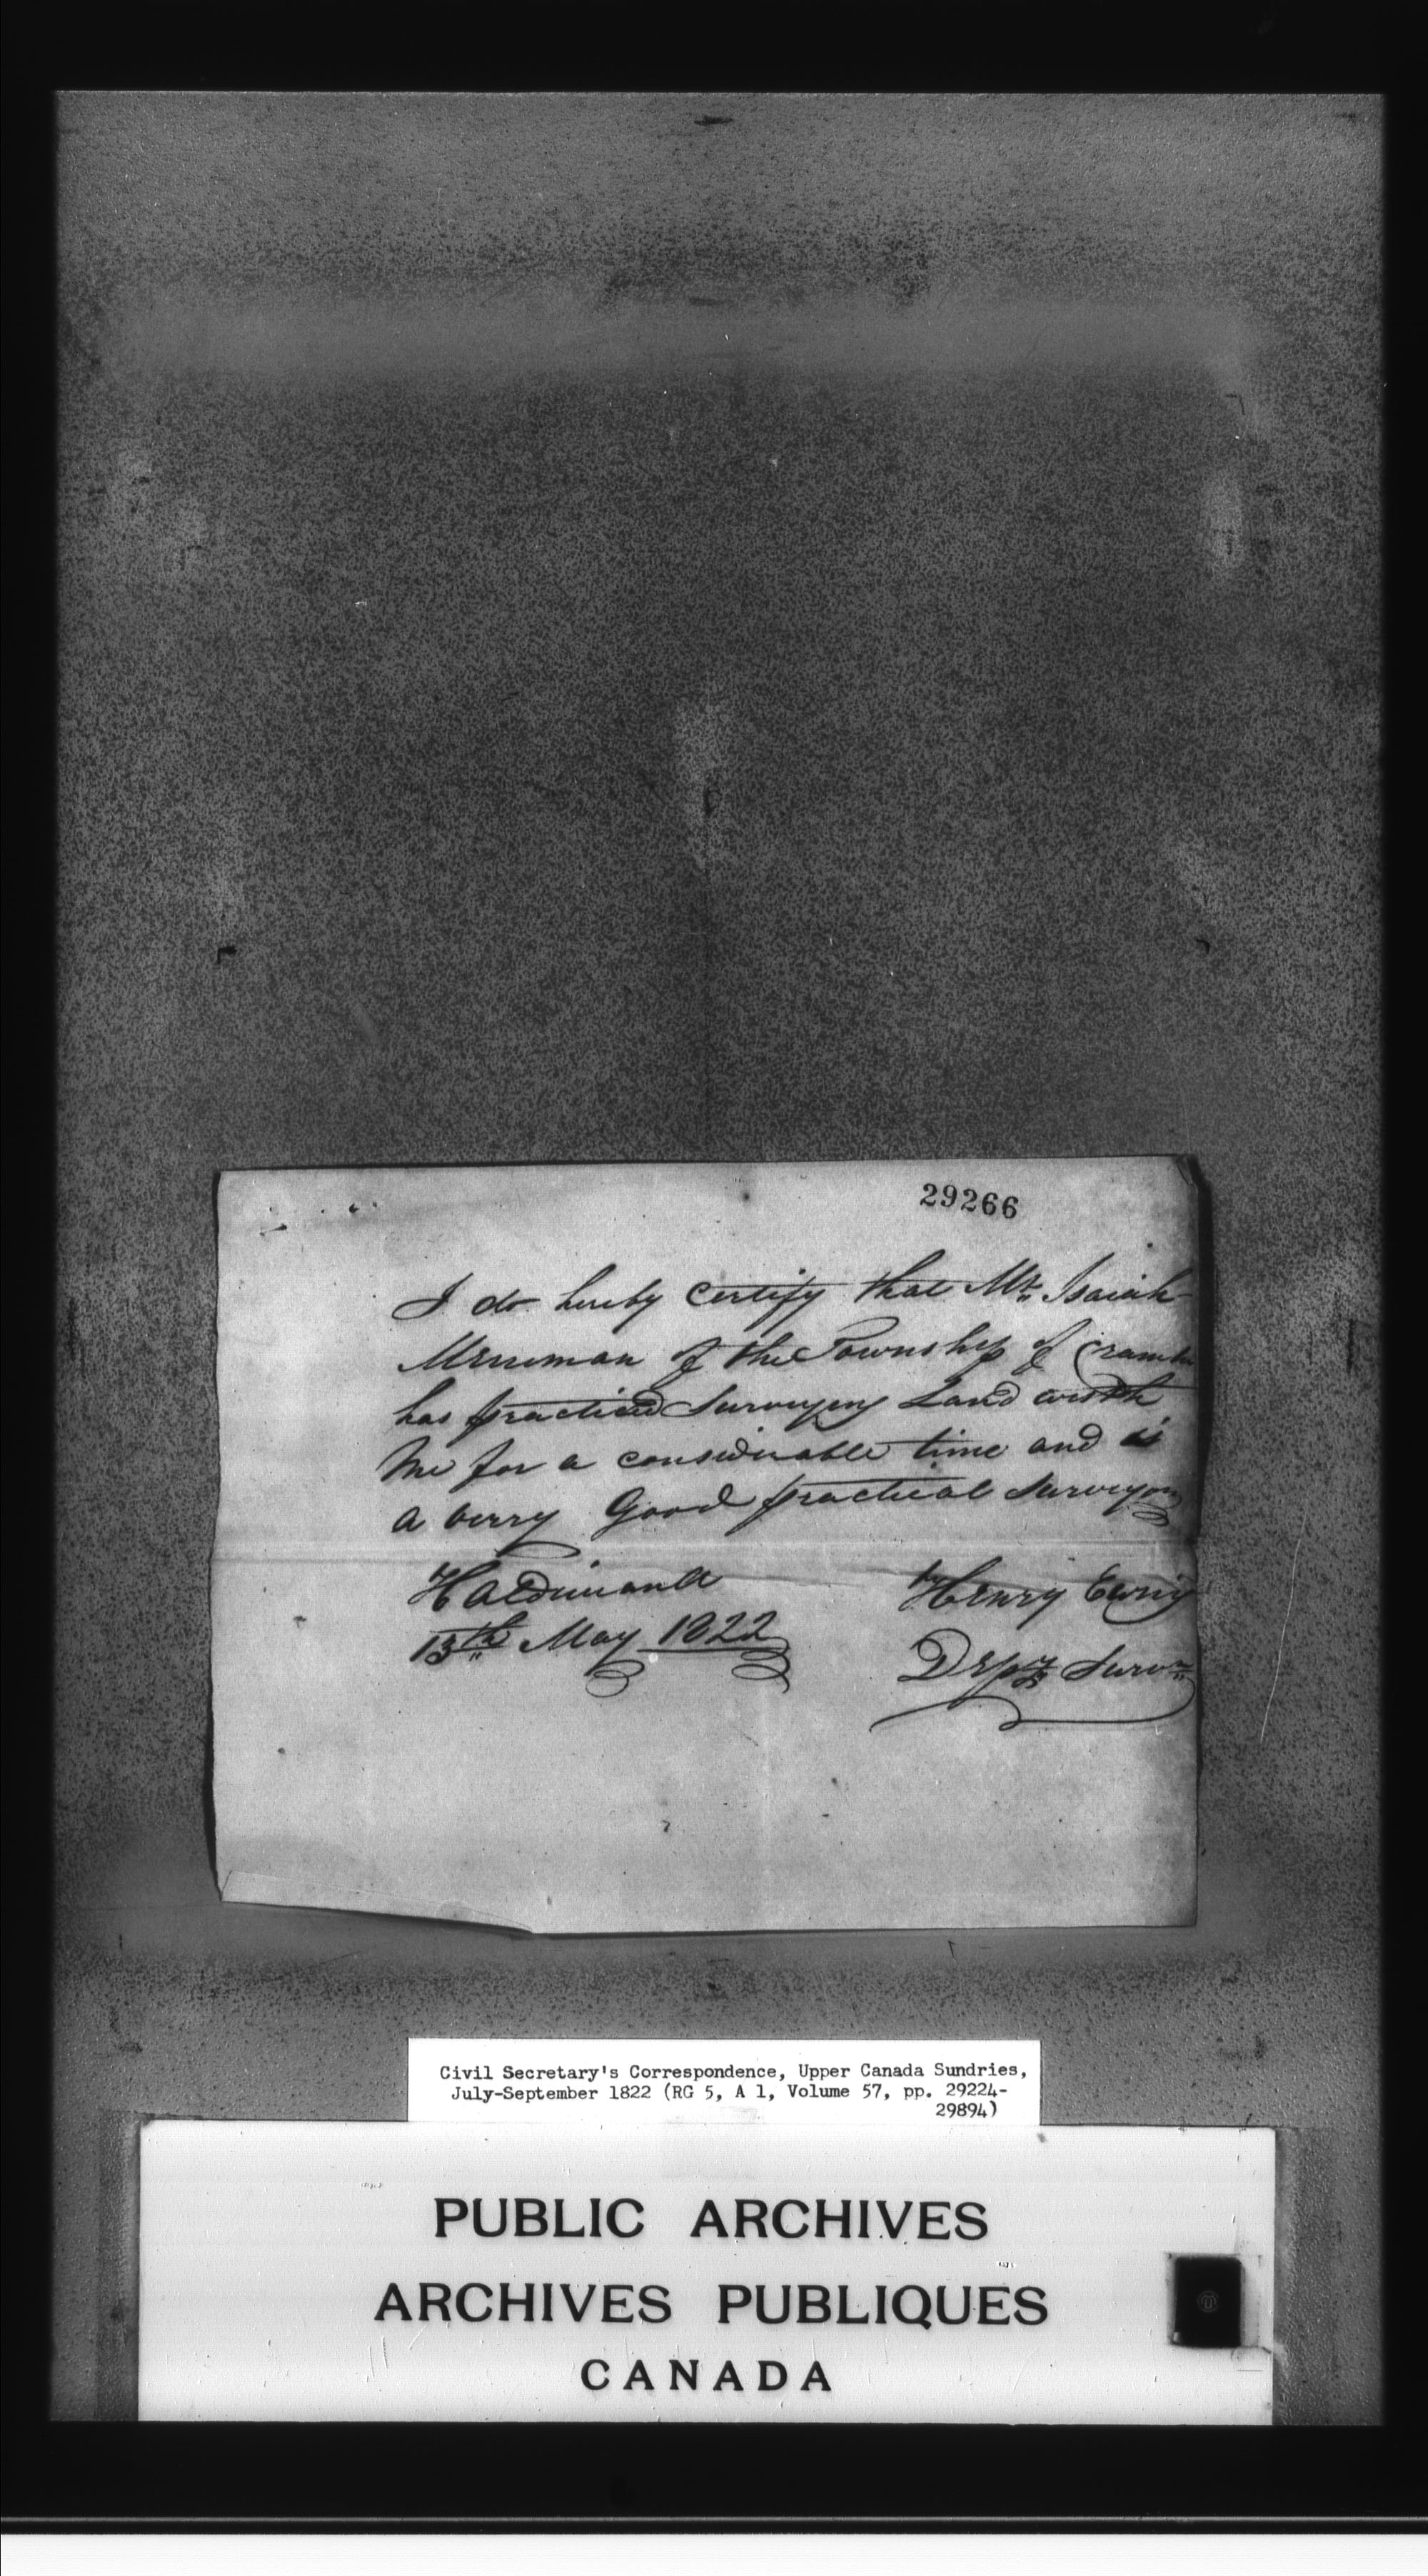 29266
I do hereby Certify that Mr. Isaiah
Merriman of the Township of Cramahe
has practiced Surveying Land with
Me for a considerable time and is
a verry Good practical Surveyor
Haldimand
13th May 1822
Henry Ewing
Depy Survr
Civil Secretary's Correspondence, Upper Canada Sundries,
July-September 1822 (RG 5, A 1, Volume 57, pp. 29224-
29894)
PUBLIC ARCHIVES
ARCHIVES PUBLIQUES
CANADA